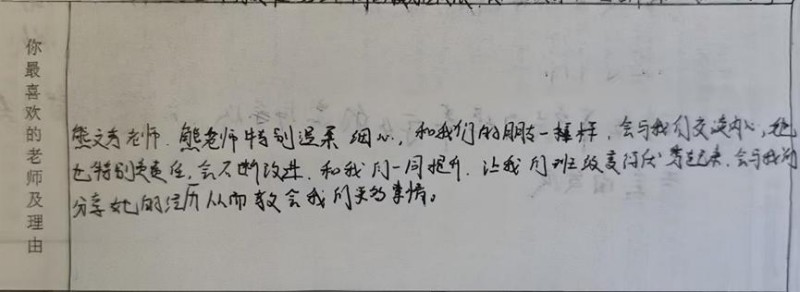 你最喜欢的老师及理由
熊文秀老师.熊老师特别温柔 细心,和我们的朋友一样,会与我们交谈内心,她
也特别负责任,会不断改进,和我们一同提升,让我们班级变得优秀起来,会与我们
分享她的经历从而教会我们更多事情。